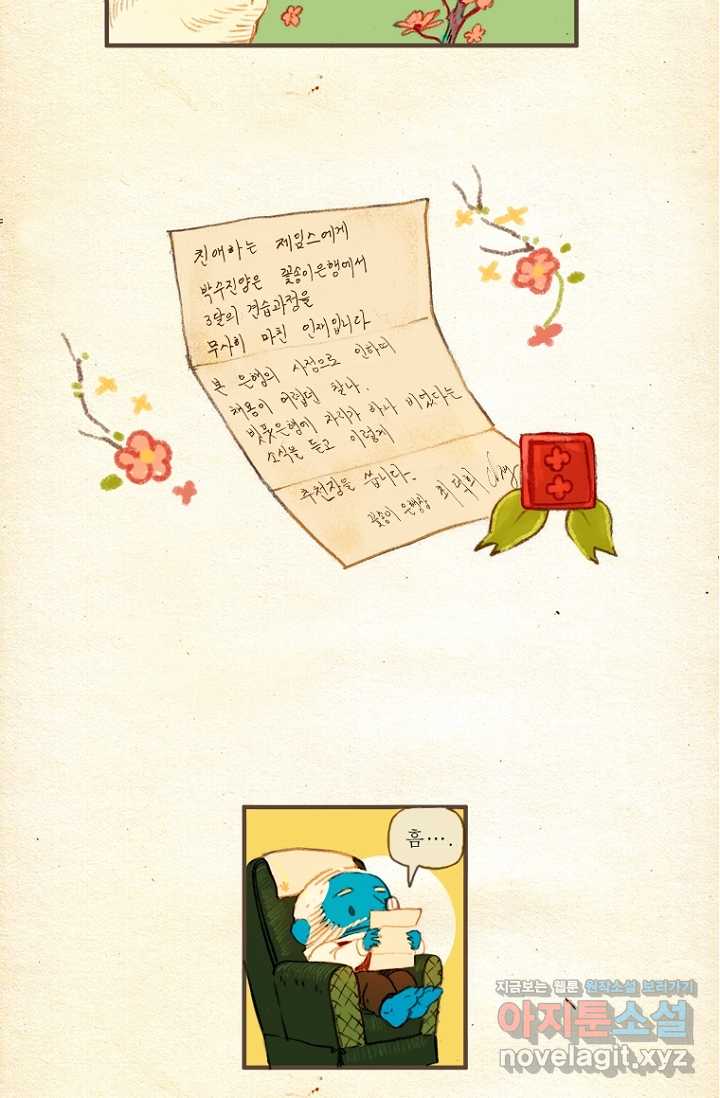 친애하는 제임스에게
박수진양은 꽃송이은행에서
3달의 견습과정을
무사히 마친 인재입니다
본 은행의 사정으로 인하여
채용이 어렵던 찰나.
빗풋은행에 자리가 하나 비었다는
소식을 듣고 이렇게
추천장을 씁니다.
꽃송이 은행장 최덕희
흠….
지금보는 웹툰 원작소설 보러가기
아지툰소설
novelagit.xyz